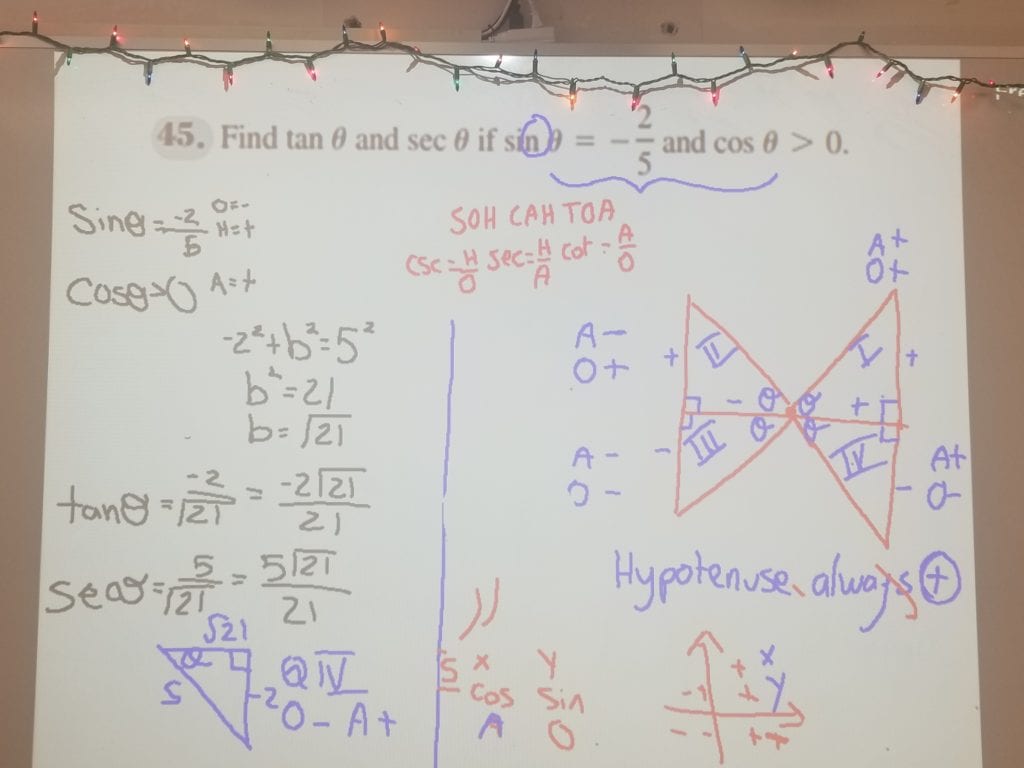 45. Find tan θ and sec θ if sin θ = -2/5 and cos θ > 0.
Sinθ = -2/5 O=- H=+
Cosθ>0 A=+
-2²+b²=5²
b²=21
b=√21
tanθ = -2/√21 = -2√21/21
secθ = 5/√21 = 5√21/21
√21
θ
5
-2
Q IV
O - A +
SOH CAH TOA
csc = H/O sec = H/A cot = A/O
A +
O +
A -
O +
+ II I +
- θ θ +
θ θ
- III IV -
A -
O -
A+
O-
Hypotenuse always +
x y
cos sin
A O
+ x
+ y